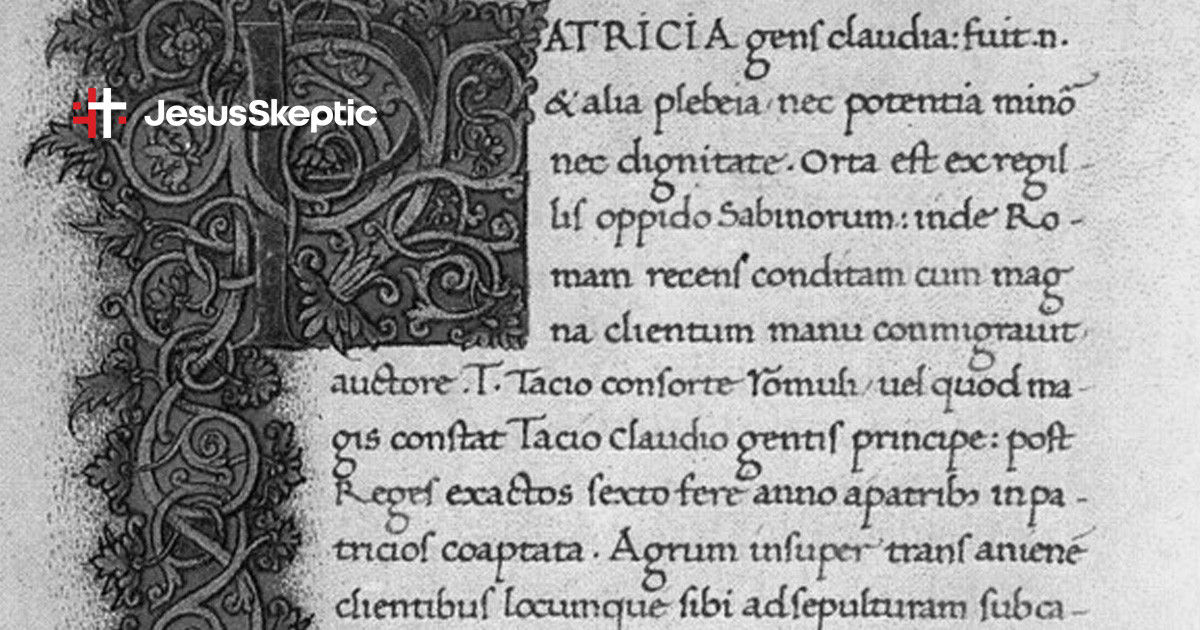 JesusSkeptic
PATRICIA genſ claudia: fuit.n.
& alia plebeia, nec potentia minō
nec dignitate. Orta eſt ex regil-
liſ oppido Sabinorum: inde Ro-
mam recenſ conditam cum mag
na clientum manu conmigrauit,
auctore .T. Tacio conſorte Romuli, uel quod ma-
gis conſtat Tacio Claudio gentiſ principe: poſt
Regeſ exactos ſexto fere anno a patribꝫ in pa-
tricioſ coaptata. Agrum inſuper tranſ anienē
clientibuſ locumque ſibi ad ſepulturam ſub ca-